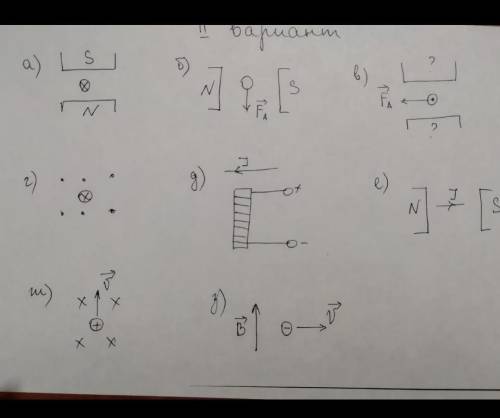 II вариант
а) S
N
б) N S
F_A
в) ?
F_A
?
г)
д) J
+
−
е) N J S
ж) V
x x
+
x x
з) B − V